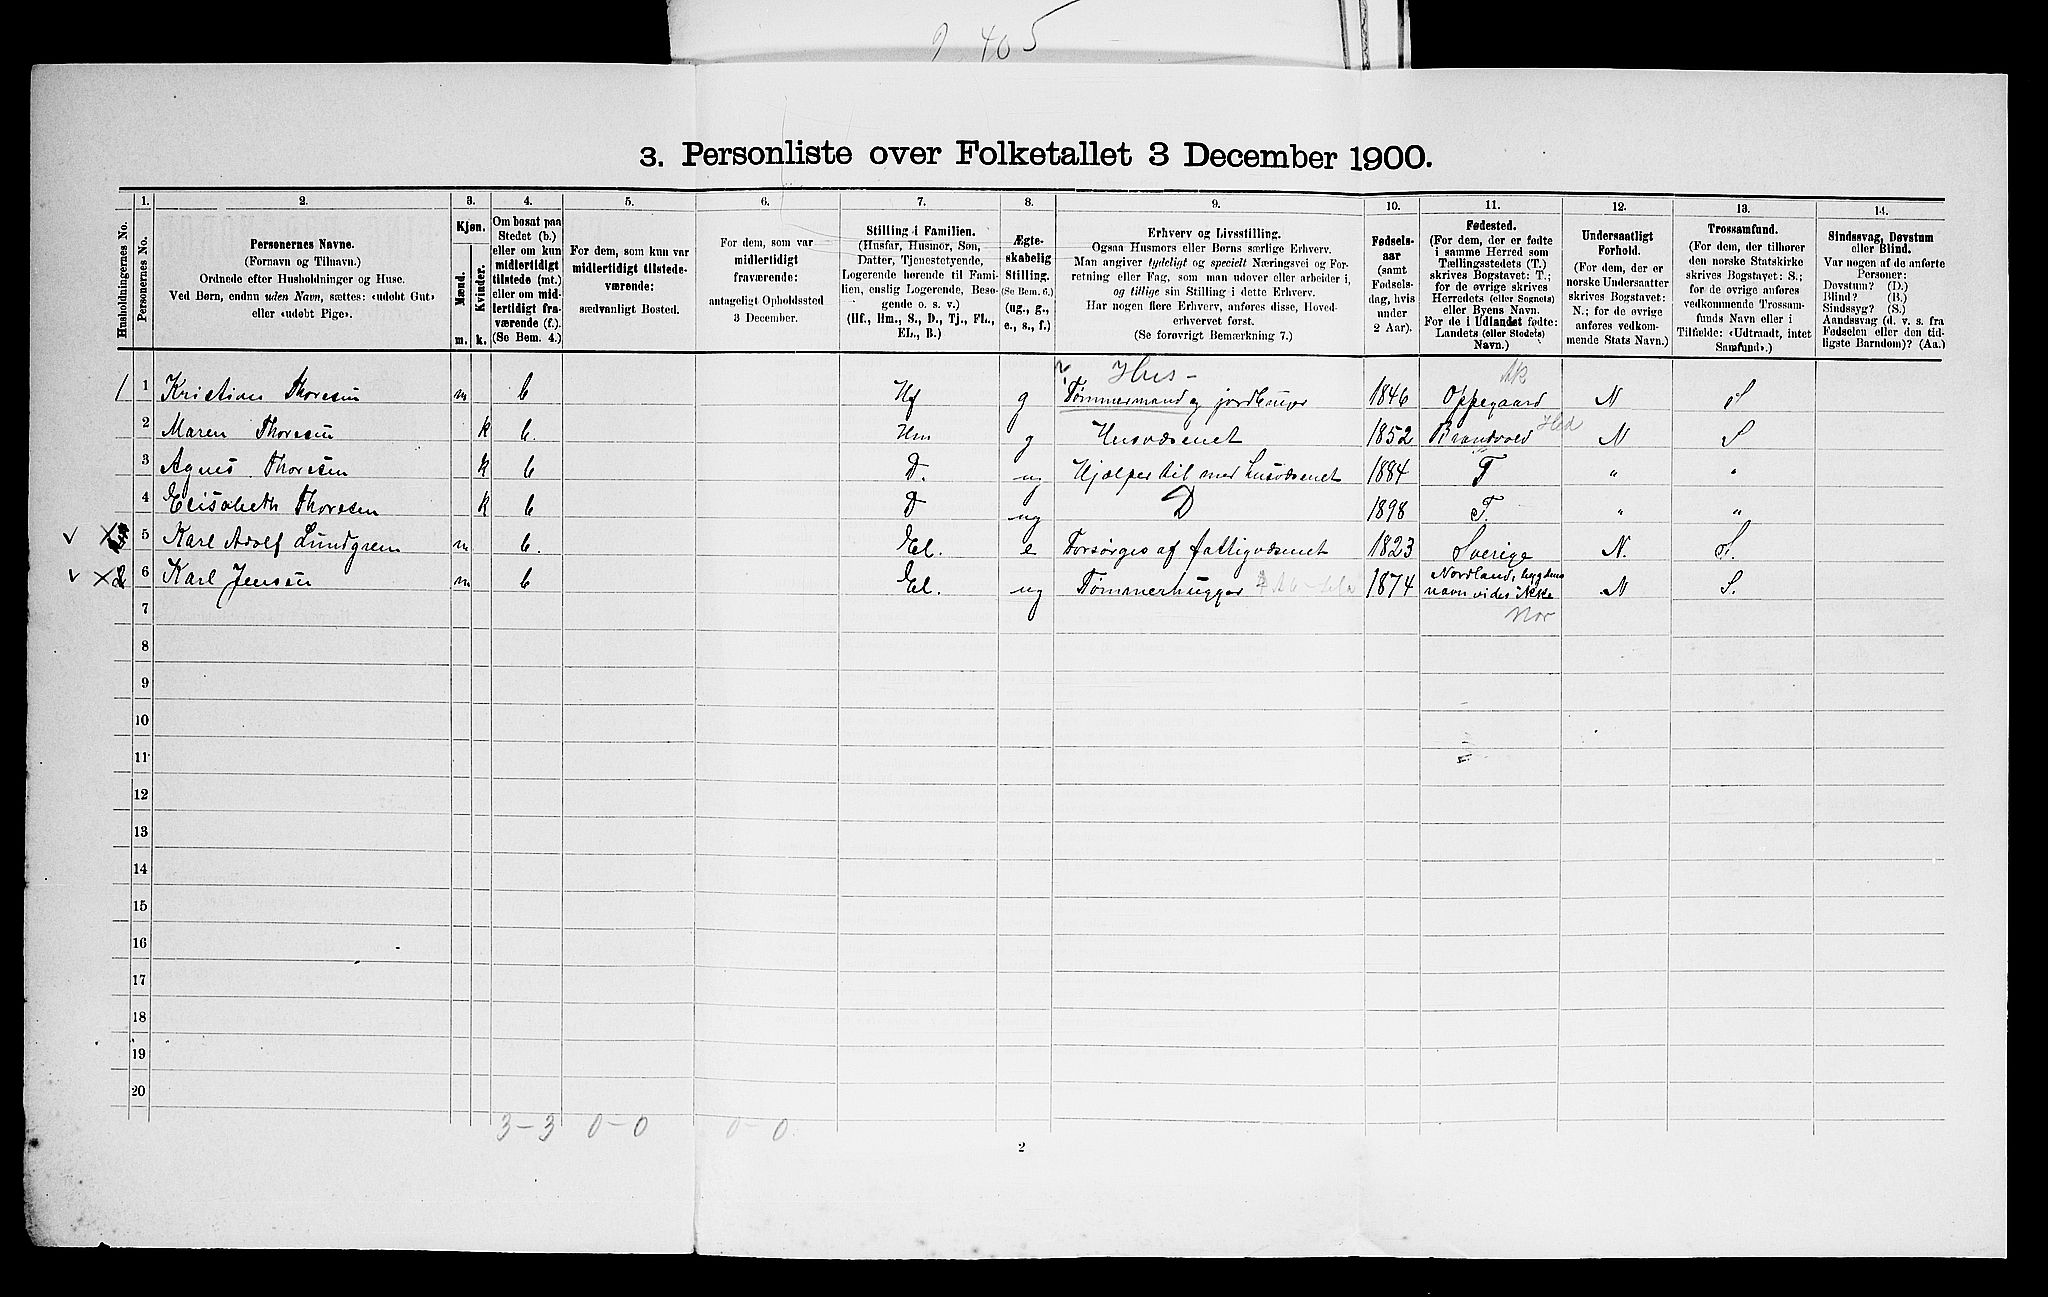 9 405
3. Personliste over Folketallet 3 December 1900.
1. 2. 3. 4. 5. 6. 7. 8. 9. 10. 11. 12. 13. 14.
Husholdningernes No.
Personernes No.
Personernes Navne.
(Fornavn og Tilnavn.)
Ordnede efter Husholdninger og Huse.
Ved Børn, endnu uden Navn, sættes: «udøbt Gut»
eller «udøbt Pige».
Kjøn.
Mænd.
Kvinder.
m. k.
Om bosat paa
Stedet (b.)
eller om kun
midlertidigt
tilstede (mt.)
eller om mid-
lertidigt fra-
værende (f.)
(Se Bem. 4.)
For dem, som kun var
midlertidigt tilstede-
værende:
sædvanligt Bosted.
For dem, som var
midlertidigt
fraværende:
antageligt Opholdssted
3 December.
Stilling i Familien.
(Husfar, Husmor, Søn,
Datter, Tjenestetyende,
Logerende hørende til Fami-
lien, enslig Logerende, Besø-
gende o. s. v.)
(Hf., Hm., S., D., Tj., FL.,
EL., B.)
Ægte-
skabelig
Stilling.
(Se Bem. 6.)
(ug., g.,
e., s., f.)
Erhverv og Livsstilling.
Ogsaa Husmors eller Børns særlige Erhverv.
Man angiver tydeligt og specielt Næringsvei og For-
retning eller Fag, som man udøver eller arbeider i,
og tillige sin Stilling i dette Erhverv.
Har nogen flere Erhverv, anføres disse, Hoved-
erhvervet først.
(Se forøvrigt Bemærkning 7.)
Fødsels-
aar
(samt
Fødsels-
dag, hvis
under
2 Aar).
Fødested.
(For dem, der er fødte
i samme Herred som
Tællingsstedets (T.)
skrives Bogstavet: T.;
for de øvrige skrives
Herredets (eller Sognets)
eller Byens Navn.
For de i Udlandet fødte:
Landets (eller Stedets)
Navn.)
Undersaatligt
Forhold.
(For dem, der er
norske Undersaatter
skrives Bogstavet:
N.; for de øvrige
anføres vedkom-
mende Stats Navn.)
Trossamfund.
(For dem, der tilhører
den norske Statskirke
skrives Bogstavet: S.;
for de øvrige anføres
vedkommende Trossam-
funds Navn eller i
Tilfælde: «Udtraadt, intet
Samfund».)
Sindssvag, Døvstum
eller Blind.
Var nogen af de anførte
Personer:
Døvstum? (D.)
Blind? (B.)
Sindssyg? (S.)
Aandssvag (d. v. s. fra
Fødselen eller den tid-
ligste Barndom)? (Aa.)
Hus - Ak
1 1 Kristian Thoresen m b Hf g Tømmermand og jordbruger 1846 Oppegaard N S
2 Maren Thoresen k b. Hm g Husvæsenet 1852 Brandvold Hed N S
3 Agnes Thoresen k b D. ug Hjælper til med husvæsenet 1884 T " "
4 Elisabeth Thoresen k b D ug D 1898 T. " "
v x 5 Karl Adolf Lundgren m b. El. e Forsørges af fattigvæsenet 1823 Sverige N. S.
v x 2 6 Karl Jensen m b El. ug Tømmerhugger 1874 Nordland, bygdens navn vides ikke N S.
Nor
7
8
9
10
11
12
13
14
15
16
17
18
19
20
3-3 0-0 0-0
2